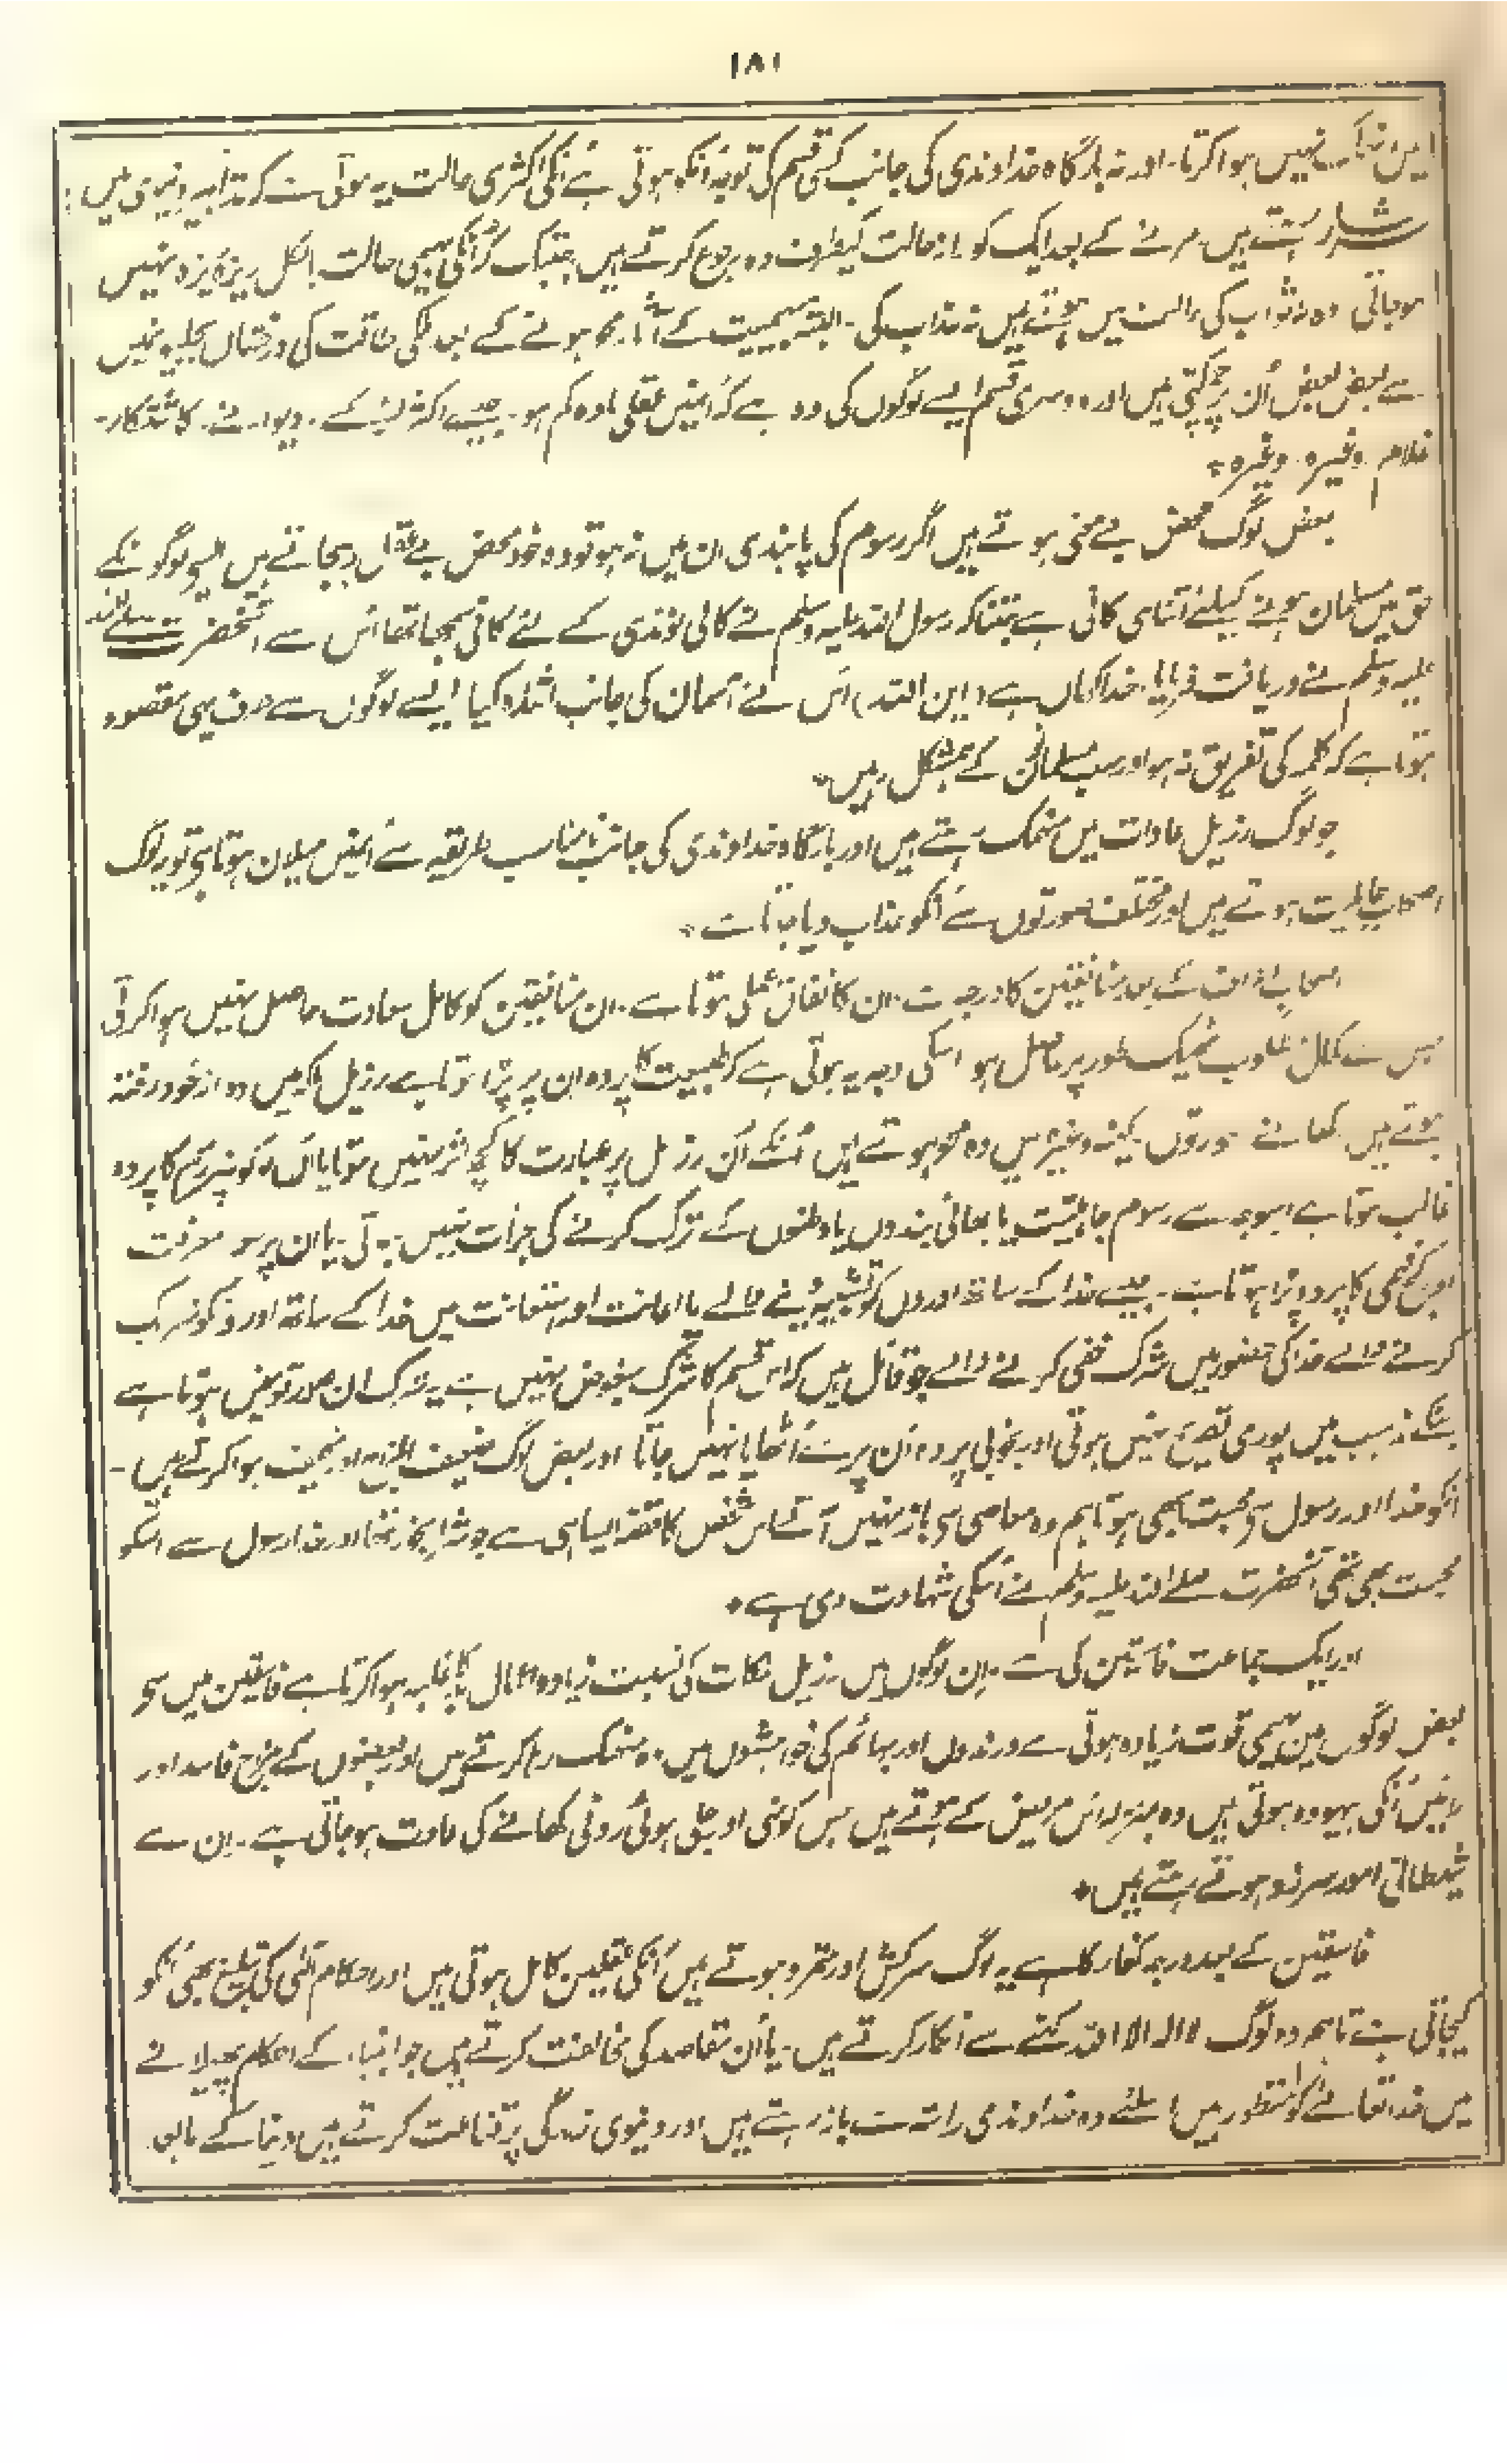 ۱۸۱
نہیں ہوا کرتا۔ اور نہ بارگاہ خداوندی کی جانب کسی قسم کی توجہ انکو ہوتی ہے انکی اکثری حالت یہ ہوتی ہے کہ تدابیر دنیوی میں
سرشار رہتے ہیں مرنے کے بعد ایک کو حالت کیطرف وہ رجوع کرتے ہیں جبتک کہ انکی بہیمی حالت بالکل ریزہ ریزہ نہیں
ہوجاتی وہ نہ ثواب کی حالت میں ہوتے ہیں نہ عذاب کی۔ البتہ بہیمیت کے آثار محو ہونے کے بعد ملکی طاقت کی درخشاں بجلیوں میں
سے بعض بعض اُن پر چمکتی ہیں اور دوسری قسم ایسے لوگوں کی وہ ہے کہ انمیں عقلی مادہ کم ہو۔ جیسے اکثر لڑکے۔ دیوانے۔ کاشتکار۔
غلام۔ وغیرہ۔ وغیرہ۔
بعض لوگ محض بے ہوتے ہیں اگر رسوم کی پابندی ان میں نہ ہو تو وہ خود محض بے عقل رہجاتے ہیں ایسے لوگونکے
حق میں مسلمان ہونے کیلئے اتنا ہی کافی ہے جتنا کہ رسول اللہ علیہ وسلم نے کالی لونڈی کے لئے کافی سمجھا تھا اُس سے آنحضرت صلے اللہ
علیہ وسلم نے دریافت فرمایا۔ خدا کہاں ہے (این اللہ) اُس نے آسمان کی جانب اشارہ کیا ایسے لوگوں سے صرف یہی مقصود
ہوتا ہے کہ کلمہ کی تفریق نہ ہو اور سب مسلمانوں کے ہمشکل رہیں۔
جو لوگ رزیل عادات میں منہمک رہتے ہیں اور بارگاہ خداوندی کی جانب نامناسب طریقہ سے انمیں میلان ہوتا ہے تو یہ لوگ
اصحاب جاہلیت ہوتے ہیں اور مختلف صورتوں سے انکو عذاب دیا جاتا ہے۔
اصحاب کے بعد منافقین کا درجہ ہے۔ ان کا نفاق عملی ہوتا ہے۔ ان منافقین کو کامل سعادت حاصل نہیں ہوا کرتی
جس سے کمال مطلوب ٹھیک طور پر حاصل ہو اسکی وجہ یہ ہوتی ہے کہ طبیعت کا پردہ ان پر پڑا ہوتا ہے رزیل میں وہ از خود رفتہ
ہوتے ہیں کھانے عورتوں کینہ وغیرہ میں وہ محو ہوتے ہیں اُنکے اُن رزیل پر عبادت کا کچھ اثر نہیں ہوتا یا اُن لوگوں پر رسم کا پردہ
غالب ہوتا ہے اسوجہ سے رسوم جاہلیت یا بھائی بندوں یا وطنوں کے ترک کرنے کی جرأت نہیں ہوتی۔ یا ان پر سوء معرفت
اور کج فہمی کا پردہ پڑا ہوتا ہے۔ جیسے خدا کے ساتھ اوروں کو تشبیہ دینے والے یا اعانت اور استعانت میں خدا کے ساتھ اورونکو شریک
کرنے والے خدا کی حضور میں شرک خفی کرنے والے جو قائل ہیں کہ اس قسم کا شرک مبغوض نہیں ہے یہ شرک ان صورتوں میں ہوتا ہے
جنکے مذہب میں پوری تصریح نہیں ہوتی اور بخوبی پردہ اُن پر سے اُٹھایا نہیں جاتا اور بعض لوگ ضعیف اور نحیف ہوا کرتے ہیں۔
انکو خدا اور رسول سے محبت بھی ہو تاہم وہ معاصی سے باز نہیں آتے اس شخص کا قصہ ایسا ہی ہے جو شرابخوار تھا اور خدا رسول سے اسکو
محبت بھی تھی آنحضرت صلے اللہ علیہ وسلم نے اُسکی شہادت دی ہے۔
اور ایک جماعت فاسقین کی ہے۔ ان لوگوں میں رزیل ملکات کی نسبت زیادہ اعمال کا غلبہ ہوا کرتا ہے فاسقین میں سے
بعض لوگوں میں بہیمی قوت زیادہ ہوتی ہے درندوں اور بہائم کی خواہشوں میں وہ منہمک رہا کرتے ہیں اور بعضوں کے مزاج فاسد اور
رائیں اُنکی بیہودہ ہوتی ہیں وہ بمنزلہ اُس مریض کے ہوتے ہیں جس کو مٹی اور جلی ہوئی روٹی کھانے کی عادت ہوجاتی ہے۔ ان سے
شیطانی امور سرزد ہوتے رہتے ہیں۔
فاسقین کے بعد درجہ کفار کا ہے یہ لوگ سرکش اور متمرد ہوتے ہیں اُنکی عقلیں کامل ہوتی ہیں اور احکام الٰہی کی تبلیغ بھی اُنکو
کیجاتی ہے تاہم وہ لوگ لا الہ الا اللہ کہنے سے انکار کرتے ہیں۔ یا اُن مقاصد کی مخالفت کرتے ہیں جو انبیاء کے احکام پھیلانے
میں خدا تعالےٰ کو منظور ہیں اسلئے وہ خداوندی راستہ سے باز رہتے ہیں اور دنیوی زندگی پر قناعت کرتے ہیں دنیا کے مابعد